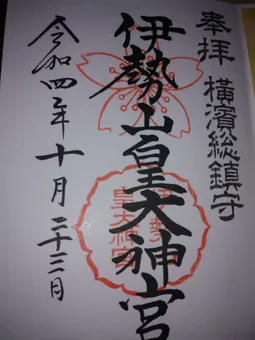 奉拝 横濱総鎮守
伊勢山皇大神宮
令和四年十月二十三日